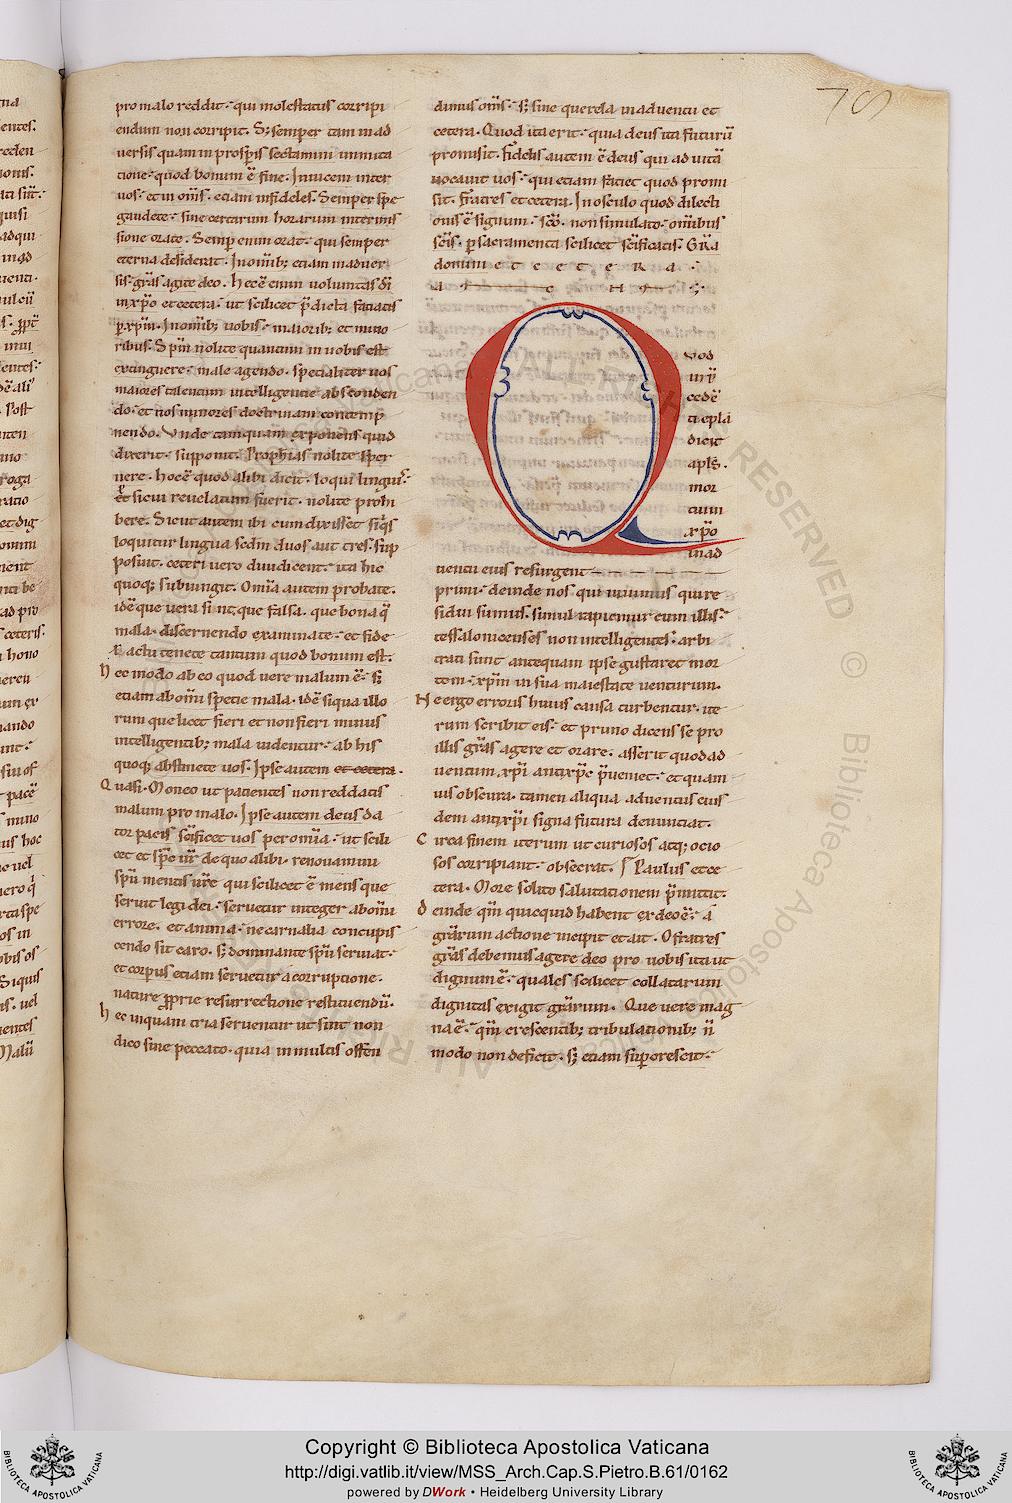 78
pro malo reddit. qui molestatus corripi
endum non corripit. S; semper tam in ad
versis quam in prosperis sectamini inimita
tione. quod bonum ē sine. Invicem inter
vos. et in om̄s. etiam infideles. Semper spe
gaudete. sine certarum horarum intermis
sione orate. Semp enim orat. qui semper
eterna desiderat. In omib; etiam in adver
sis. grās agite deo. Hec ē enim voluntas dī
in xp̄o et cetera. ut scilicet p̄dicta faciatis
p xp̄m. In omib; vobis. maiorib; et mino
ribus. Sp̄m nolite quantum in vobis est
extinguere. male agendo. specialiter vos
maiores talentum intelligentie absconden
do. et vos minores doctrinam contemp
nendo. Unde tamquam exponens quid
dixerit. supponit. Prophetias nolite sper
nere. hoc ē quod alibi dicit. loqui linguis.
et sicui revelatum fuerit. nolite prohi
bere. Sicut autem ibi cum dixisset siqͥs
loquitur lingua scdm duos aut tres. sup
posuit. ceteri vero diiudicent. ita hic
quoq; subiungit. Omīa autem probate.
idē que vera sint. que falsa. que bona q̄
mala. discernendo examinate. et fide
ł actu tenete tantum quod bonum est.
hec modo ab eo quod vere malum ē. s;
etiam ab omī specie mala. idē siqua illo
rum que licet fieri et non fieri minus
intelligentib; mala videntur. ab his
quoq; abstinete vos. Ipse autem et cetera.
Quasi. Moneo ut patientes non reddatis
malum pro malo. Ipse autem deus da
tor pacis sc̄ificet vos per omīa. ut scili
cet et sp̄c vr̄ de quo alibi. renovamini
spū mentis vr̄e qui scilicet ē mens que
servit legi dei. servetur integer ab omī
errore. et anima. ne carnalia concupis
cendo sit caro. s; dominante spū serviat.
et corpus etiam servetur a corruptione.
nature proprie resurrectione restituendū.
hec inquam tria serventur ut sint non
dico sine peccato. quia in multis offen
dimus om̄s. s; sine querela in adventu et
cetera. Quod ita erit. quia deus ita futurū
promisit. fidelis autem ē deus qui ad vitā
vocavit vos. qui etiam faciet quod promi
sit. Fratres et cetera. In osculo quod dilecti
onis ē signum. sc̄o. non simulato. omibus
sc̄is. p sacramenta scilicet sc̄ificatis. Gra
donum et cetera.
Quod
cedē
ti epla
dicit
apls.
mor
tuin
xp̄o
in ad
ventu eius resurgent
primi. deinde nos qui vivimus qui re
sidui sumus. simul rapiemur cum illis.
tessalonicenses non intelligentes. arbi
trati sunt antequam ipse gustaret mor
tem. xp̄m in sua maiestate venturum.
Ne ergo erroris huius causa turbentur. ite
rum scribit eis. et primo dicens se pro
illis grās agere et orare. asserit quod ad
ventum xp̄i antixp̄c p̄veniet. et quam
vis obscura. tamen aliqua adventus eius
dem antixp̄i signa futura denuntiat.
Circa finem iterum ut curiosos atq; ocio
sos corripiant. obsecrat. Paulus et ce
tera. More solito salutationem p̄mittit.
deinde qm̄ quicquid habent ex deo ē. a
grārum actione incipit et ait. O fratres
grās debemus agere deo pro vobis ita ut
dignum ē. quales scilicet collatarum
dignitas exigit grārum. Que vere mag
na ē. qm̄ crescentib; tribulationib; n̄
modo non deficit. s; etiam supcrescit.
Copyright © Biblioteca Apostolica Vaticana
http://digi.vatlib.it/view/MSS_Arch.Cap.S.Pietro.B.61/0162
powered by DWork • Heidelberg University Library